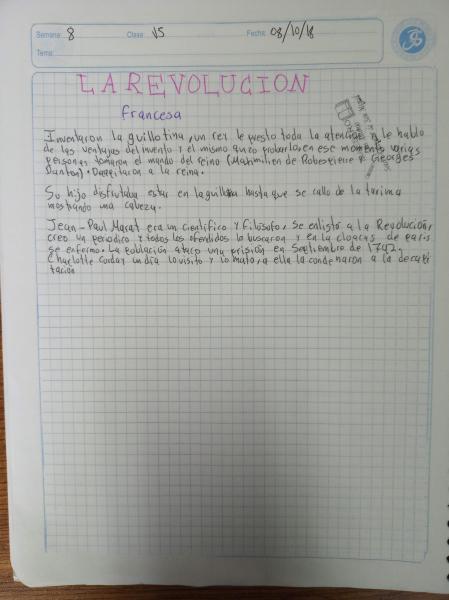 Semana: 8 Clase: 15 Fecha: 08/10/18
Tema:
LA REVOLUCION
francesa
Inventaron la guillotina, un rey le puesto toda la atencion, le hablo
de las ventajas del invento y el mismo quizo probarlo, en ese momento varias
personas tomaron el mando del reino (Maximilien de Robespierre y Georges
Danton). Decapitaron a la reina.
Su hijo disfrutaba estar en la guillotina hasta que se callo de la tarima
mostrando una cabeza.
Jean-Paul Marat era un cientifico y filosofo, se enlistó a la Revolución,
creo un periodico y todos los ofendidos lo buscaron y en la cloacas de paris
se enfermo. La población ataco una prisión en Septiembre de 1792.
Charlotte Corday un dia lo visito y lo mato, a ella la condenaron a la decapi
tación